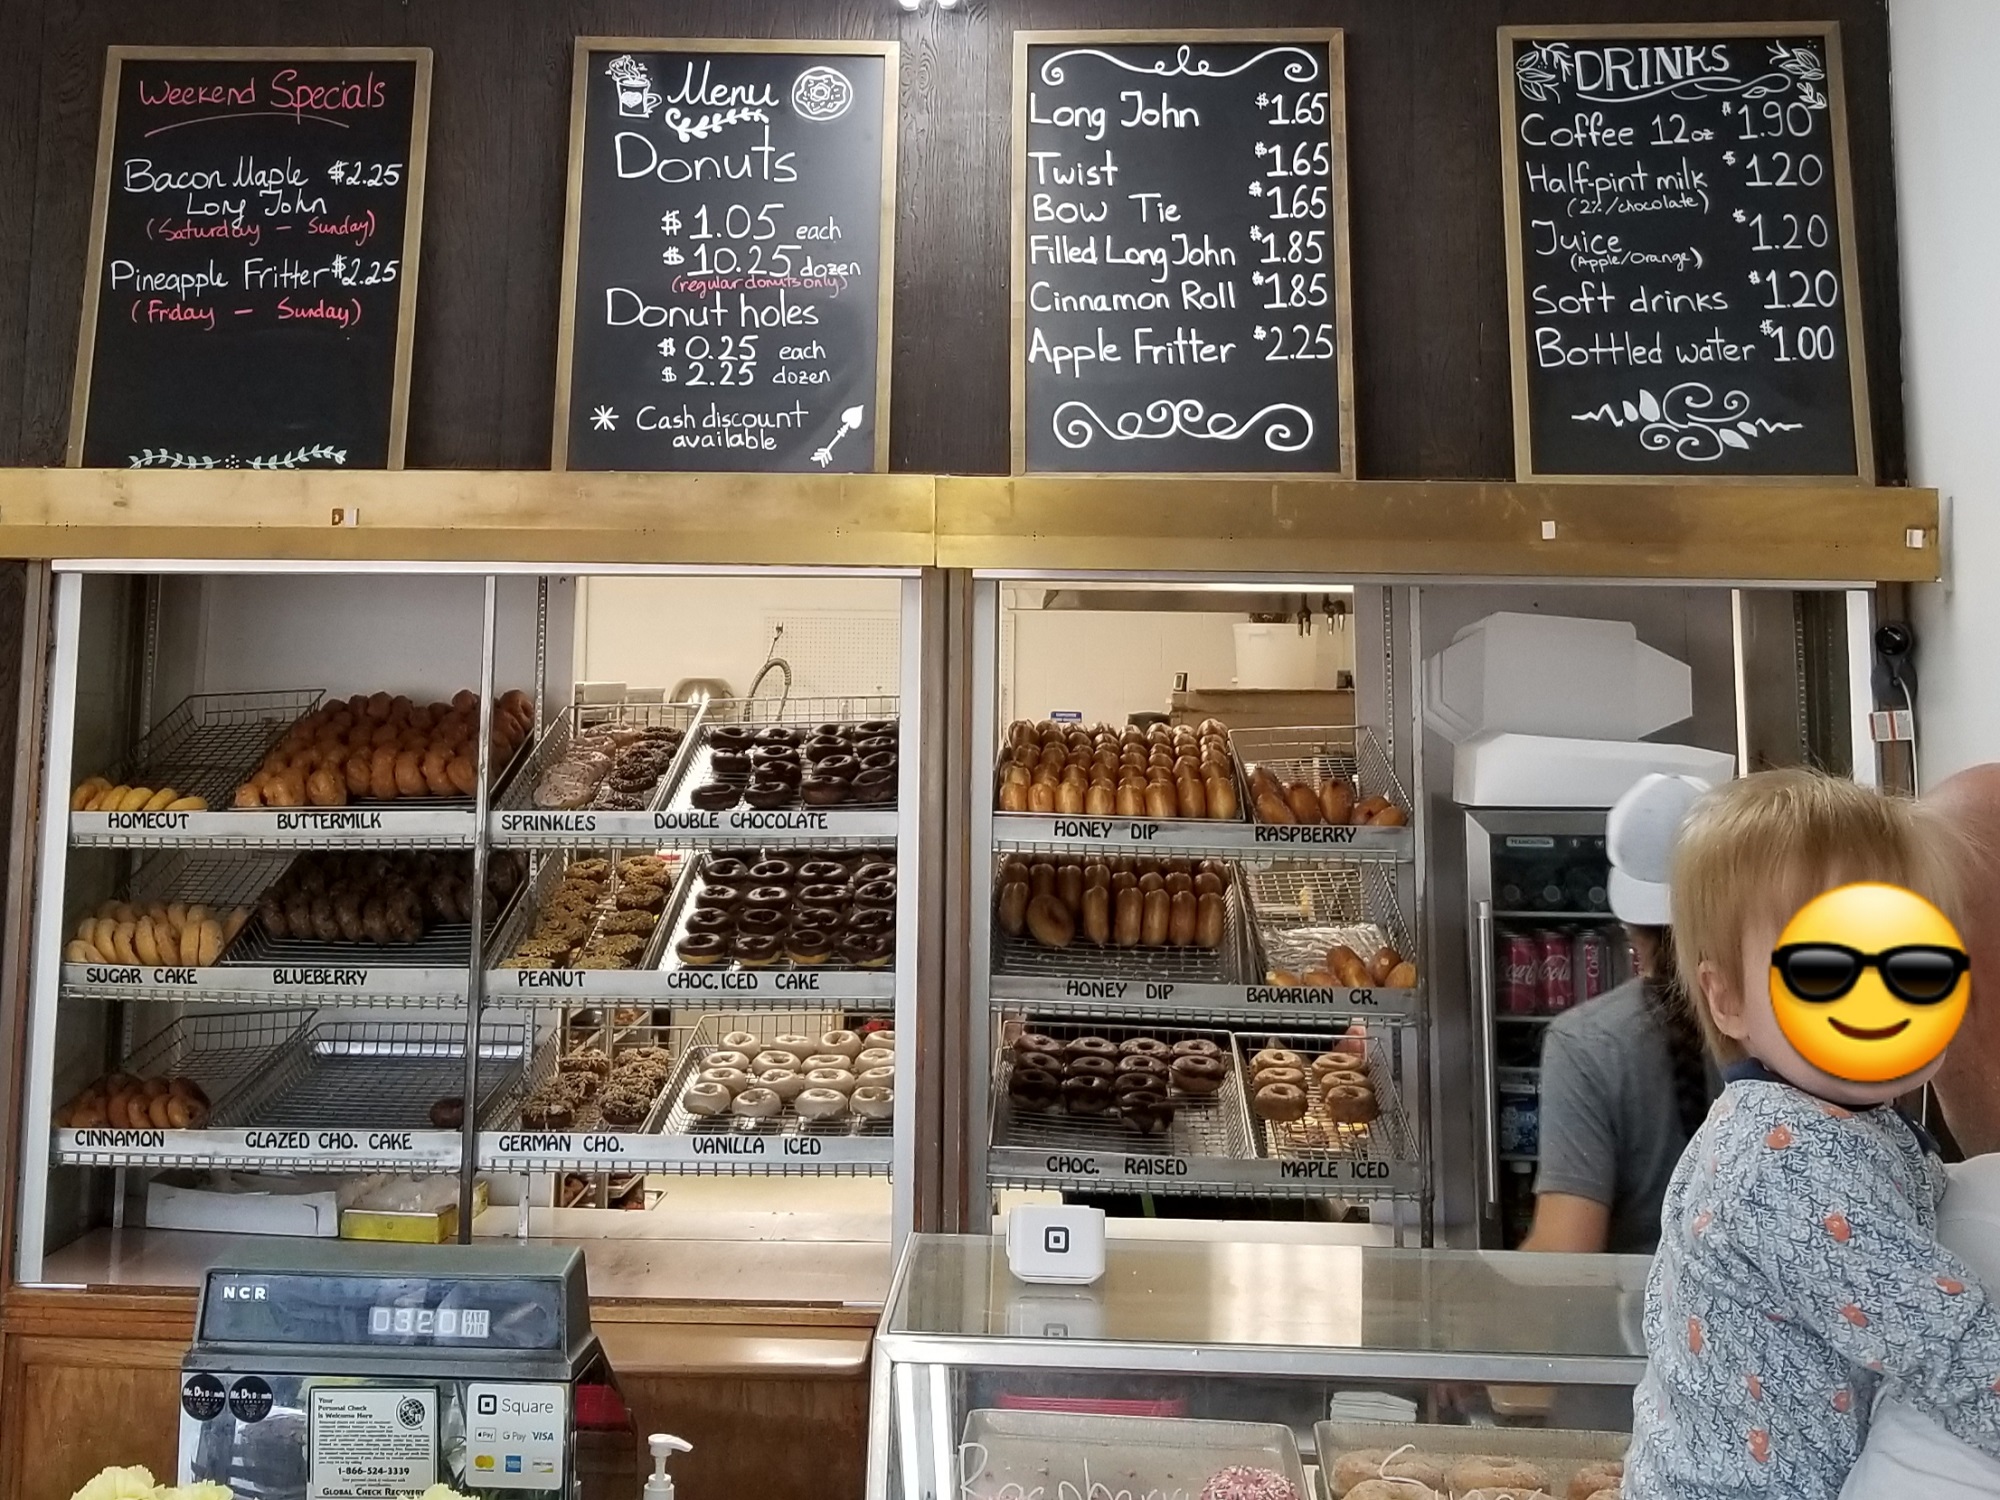 Weekend Specials
Bacon Maple $2.25
Long John
(Saturday - Sunday)
Pineapple Fritter $2.25
(Friday - Sunday)
Menu
Donuts
$1.05 each
$10.25 dozen
(regular donuts only)
Donut holes
$0.25 each
$2.25 dozen
* Cash discount
available
Long John $1.65
Twist $1.65
Bow Tie $1.65
Filled Long John $1.85
Cinnamon Roll $1.85
Apple Fritter $2.25
DRINKS
Coffee 12oz $1.90
Half-pint milk $1.20
(2%/chocolate)
Juice $1.20
(Apple/Orange)
Soft drinks $1.20
Bottled water $1.00
HOMECUT BUTTERMILK
SPRINKLES DOUBLE CHOCOLATE
HONEY DIP RASPBERRY
SUGAR CAKE BLUEBERRY
PEANUT CHOC. ICED CAKE
HONEY DIP BAVARIAN CR.
CINNAMON GLAZED CHO. CAKE
GERMAN CHO. VANILLA ICED
CHOC. RAISED MAPLE ICED
NCR
0320 CASH PAID
Mr. D's Donuts
Mr. D's Donuts
Your
Personal Check
is Welcome Here
1-866-524-3339
GLOBAL CHECK RECOVERY
Square
Pay G Pay VISA
Raspberry